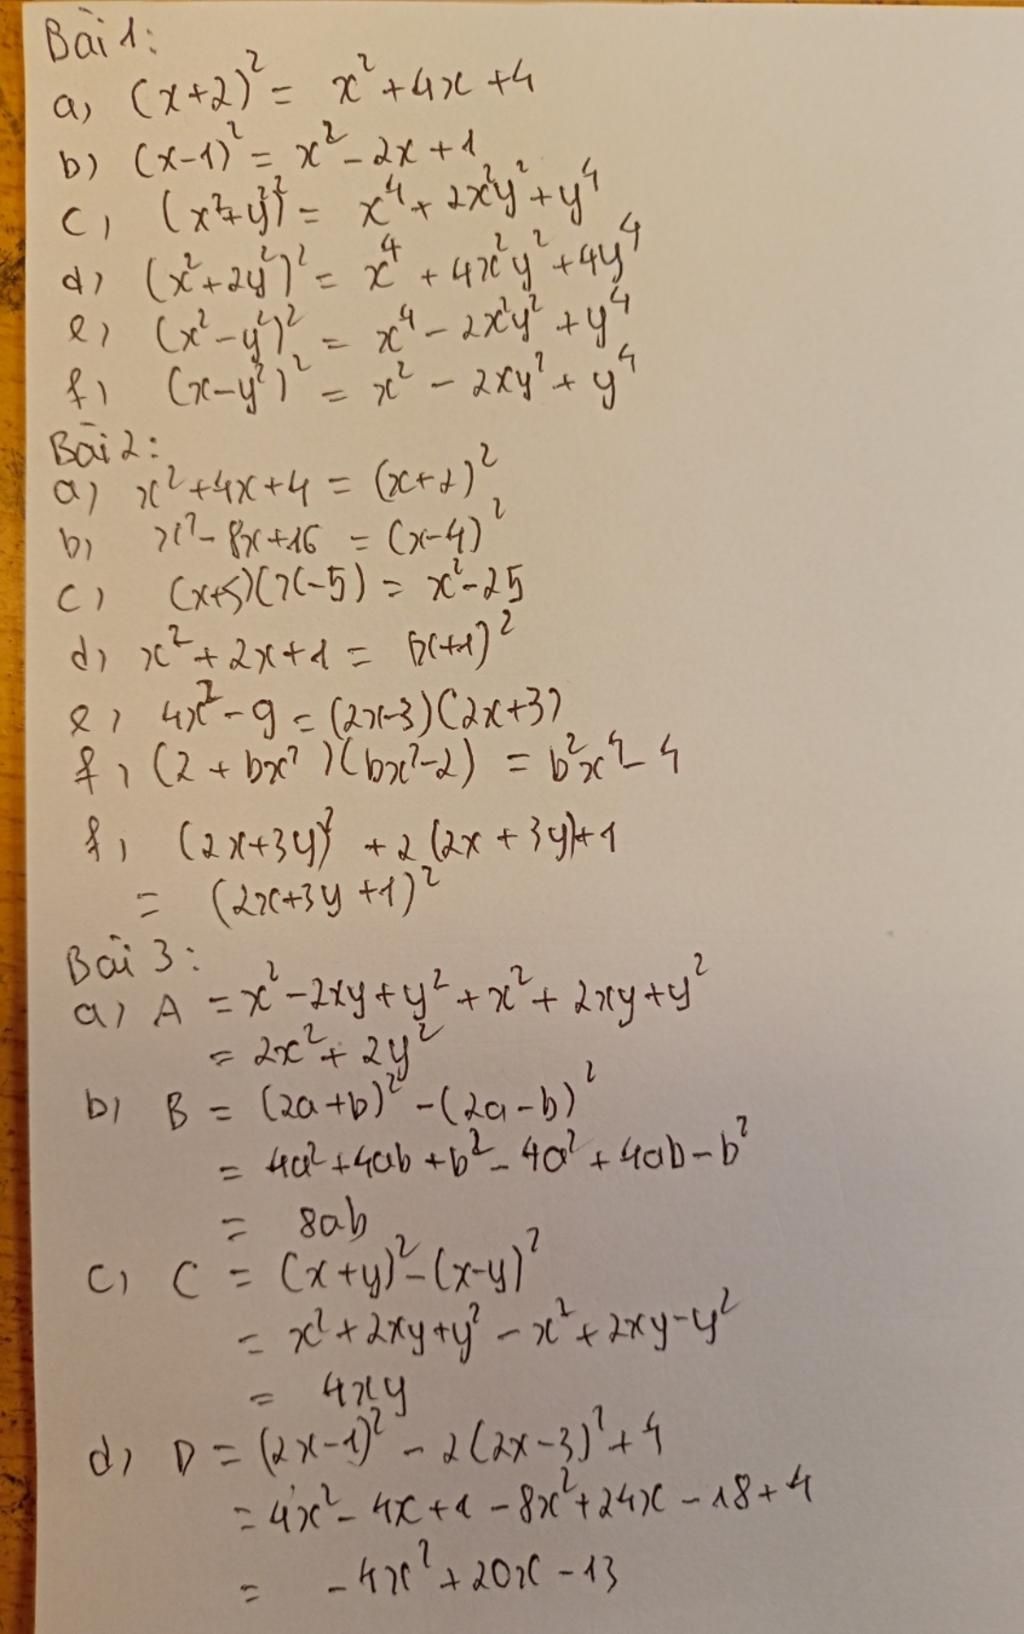 Bài 1:
a) (x+2)² = x² + 4x + 4
b) (x-1)² = x² - 2x + 1
c) (x²+y²)² = x⁴ + 2x²y² + y⁴
d) (x²+2y²)² = x⁴ + 4x²y² + 4y⁴
e) (x²-y²)² = x⁴ - 2x²y² + y⁴
f) (x-y²)² = x² - 2xy² + y⁴
Bài 2:
a) x² + 4x + 4 = (x+2)²
b) x² - 8x + 16 = (x-4)²
c) (x+5)(x-5) = x² - 25
d) x² + 2x + 1 = (x+1)²
e) 4x² - 9 = (2x-3)(2x+3)
f) (2 + bx²)(bx²-2) = b²x⁴ - 4
f) (2x+3y)² + 2(2x+3y)+1
= (2x+3y+1)²
Bài 3:
a) A = x² - 2xy + y² + x² + 2xy + y²
= 2x² + 2y²
b) B = (2a+b)² - (2a-b)²
= 4a² + 4ab + b² - 4a² + 4ab - b²
= 8ab
c) C = (x+y)² - (x-y)²
= x² + 2xy + y² - x² + 2xy - y²
= 4xy
d) D = (2x-1)² - 2(2x-3)² + 4
= 4x² - 4x + 1 - 8x² + 24x - 18 + 4
= -4x² + 20x - 13